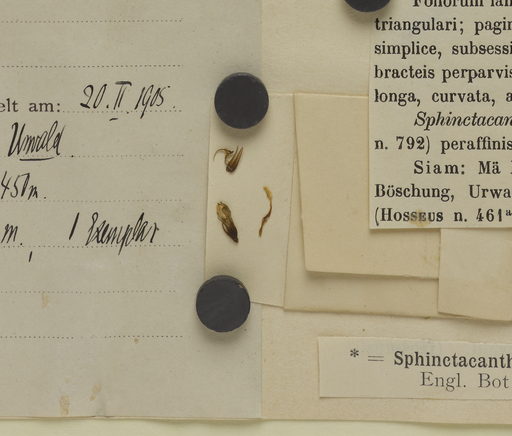 elt am: 20. II. 1905.
Urwald
450 m.
m. 1 Exemplar
triangulari; pagin
simplice, subsessi
bracteis perparvis
longa, curvata, a
Sphinctacan
n. 792) peraffinis
Siam: Mä
Böschung, Urwa
(Hosseus n. 461ª
* = Sphinctacanth
Engl. Bot